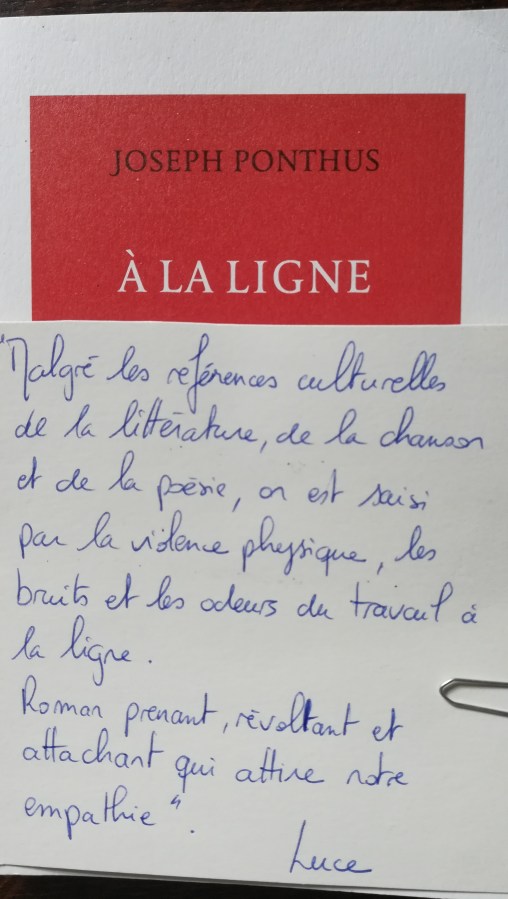 JOSEPH PONTHUS
À LA LIGNE
"Malgré les références culturelles
de la littérature, de la chanson
et de la poésie, on est saisi
par la violence physique, les
bruits et les odeurs du travail à
la ligne.
Roman prenant, révoltant et
attachant qui attire notre
empathie".
Luce